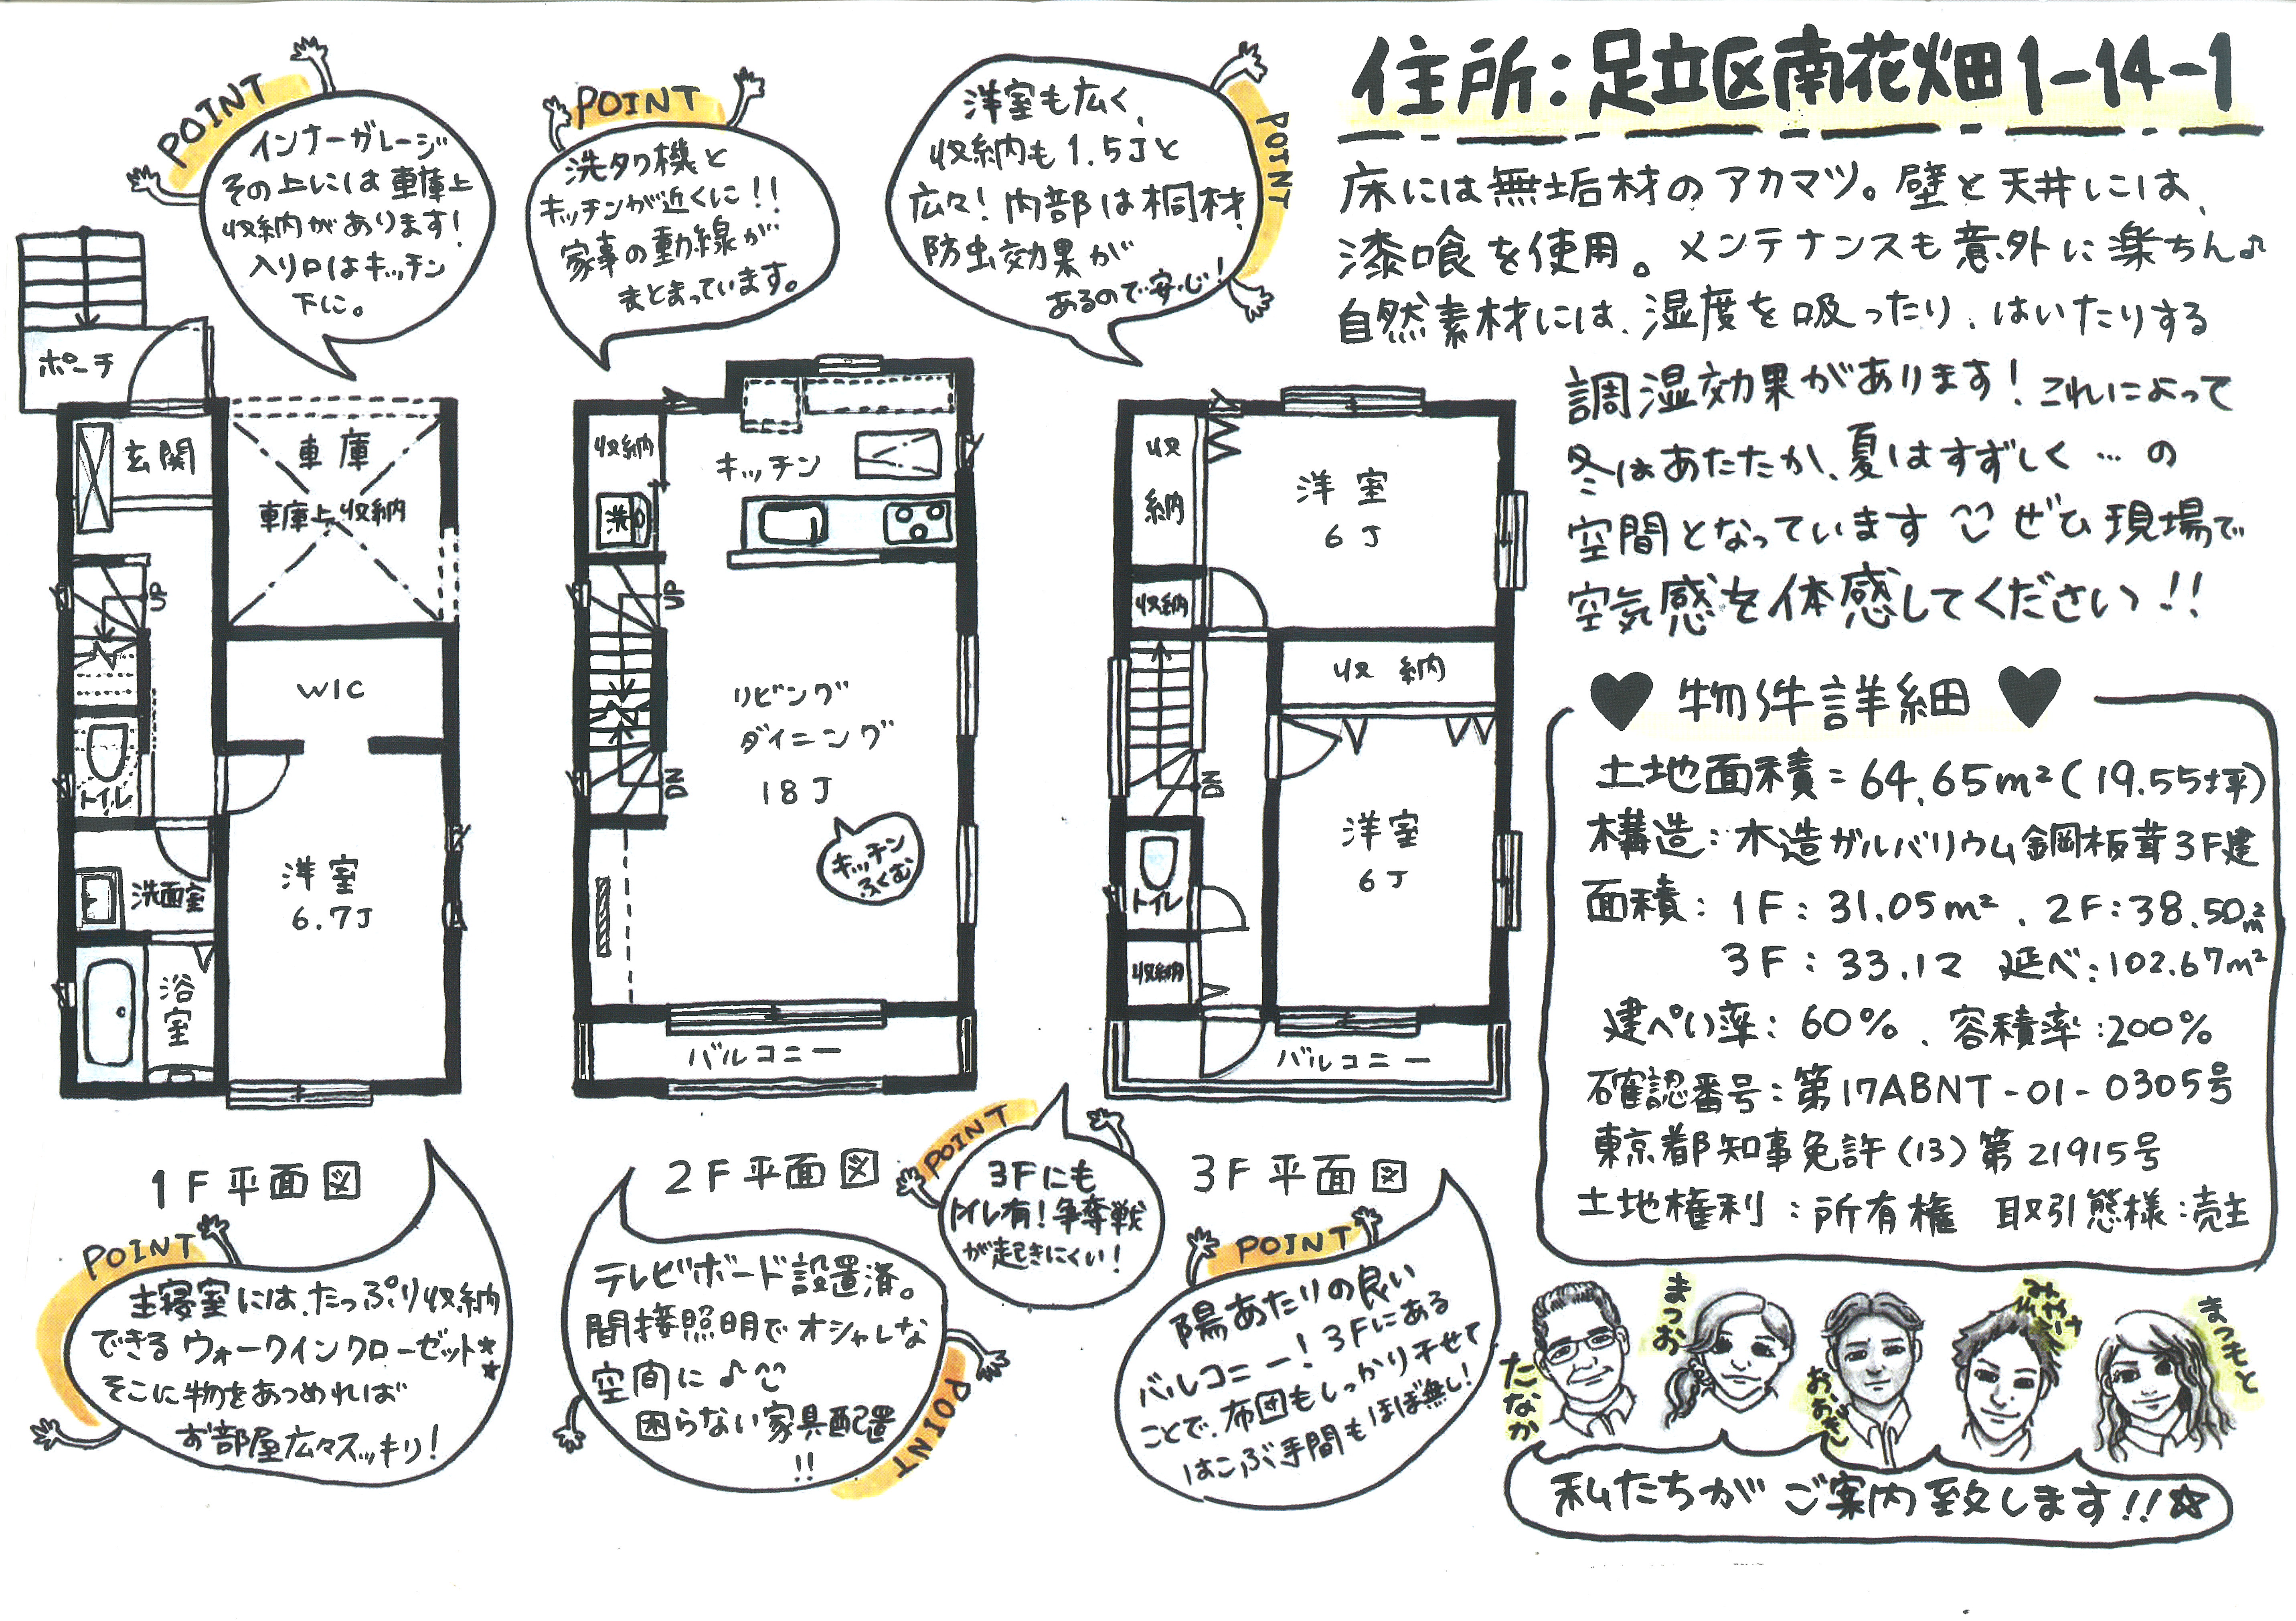 住所：足立区南花畑1-14-1
床には無垢材のアカマツ。壁と天井には、
漆喰を使用。メンテナンスも意外に楽ちん♪
自然素材には、湿度を吸ったり、はいたりする
調湿効果があります！これによって
冬はあたたか、夏はすずしく…の
空間となっています ぜひ現場で
空気感を体感してください!!
POINT
インナーガレージ
その上には車庫上
収納があります！
入り口はキッチン
下に。
POINT
洗タク機と
キッチンが近くに!!
家事の動線が
まとまっています。
POINT
洋室も広く、
収納も1.5Jと
広々！内部は桐材、
防虫効果が
あるので安心！
ポーチ
玄関
車庫
車庫上収納
UP
WIC
トイレ
洗面室
洋室
6.7J
浴室
1F平面図
収納
洗
キッチン
UP
リビング
ダイニング
18J
DN
キッチン
ふくむ
バルコニー
2F平面図
収納
洋室
6J
収納
収納
DN
洋室
6J
トイレ
収納
バルコニー
3F平面図
POINT
主寝室には、たっぷり収納
できるウォークインクローゼット★★
そこに物をあつめれば
お部屋広々スッキリ！
POINT
テレビボード設置済。
間接照明でオシャレな
空間に♪
困らない家具配置
!!
POINT
3Fにも
トイレ有！争奪戦
が起きにくい！
POINT
陽あたりの良い
バルコニー！3Fにある
ことで、布団もしっかり干せて
はこぶ手間もほぼ無し！
♥物件詳細♥
土地面積=64.65m²(19.55坪)
構造：木造ガルバリウム鋼板葺3F建
面積：1F：31.05m²、2F：38.50m²
3F：33.12 延べ：102.67m²
建ぺい率：60%、容積率：200%
確認番号：第17ABNT-01-0305号
東京都知事免許(13)第21915号
土地権利：所有権 取引態様：売主
たなか
まつお
おおぎし
みやけ
まつもと
私たちがご案内致します!!☆